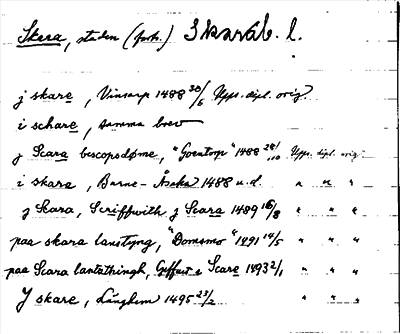 Skara, staden (forts.) Skarab. l.
j skare, Vinsarp 1488 30/6 Upps. dipl. orig.
i schare, samma brev
j Scara bescopsdøme, "Goentorp" 1488 28/10 Upps. dipl. orig.
i skara, Barne-Åsaka 1488 u.d. " " "
j Skara, Scriffwith j Scara 1489 16/8 " " "
paa skara lanstyng, "Domsmo" 1491 14/5 " " "
paa Scara lantzthingh, Giffuet i Scare 1493 2/1 " " "
J skare, Långhem 1495 23/2 " " "